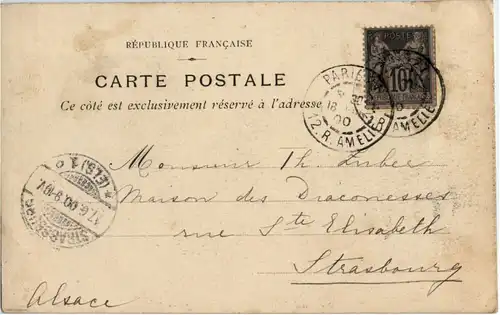 RÉPUBLIQUE FRANÇAISE
CARTE POSTALE
Ce côté est exclusivement réservé à l'adresse
POSTE
10
PARIS
12. R. AMELLE
AMELLE
STRASSBURG
(ELS) 1
Monsieur Th. Huber
Maison des Diaconesses
rue Ste Elisabeth
Strasbourg
Alsace